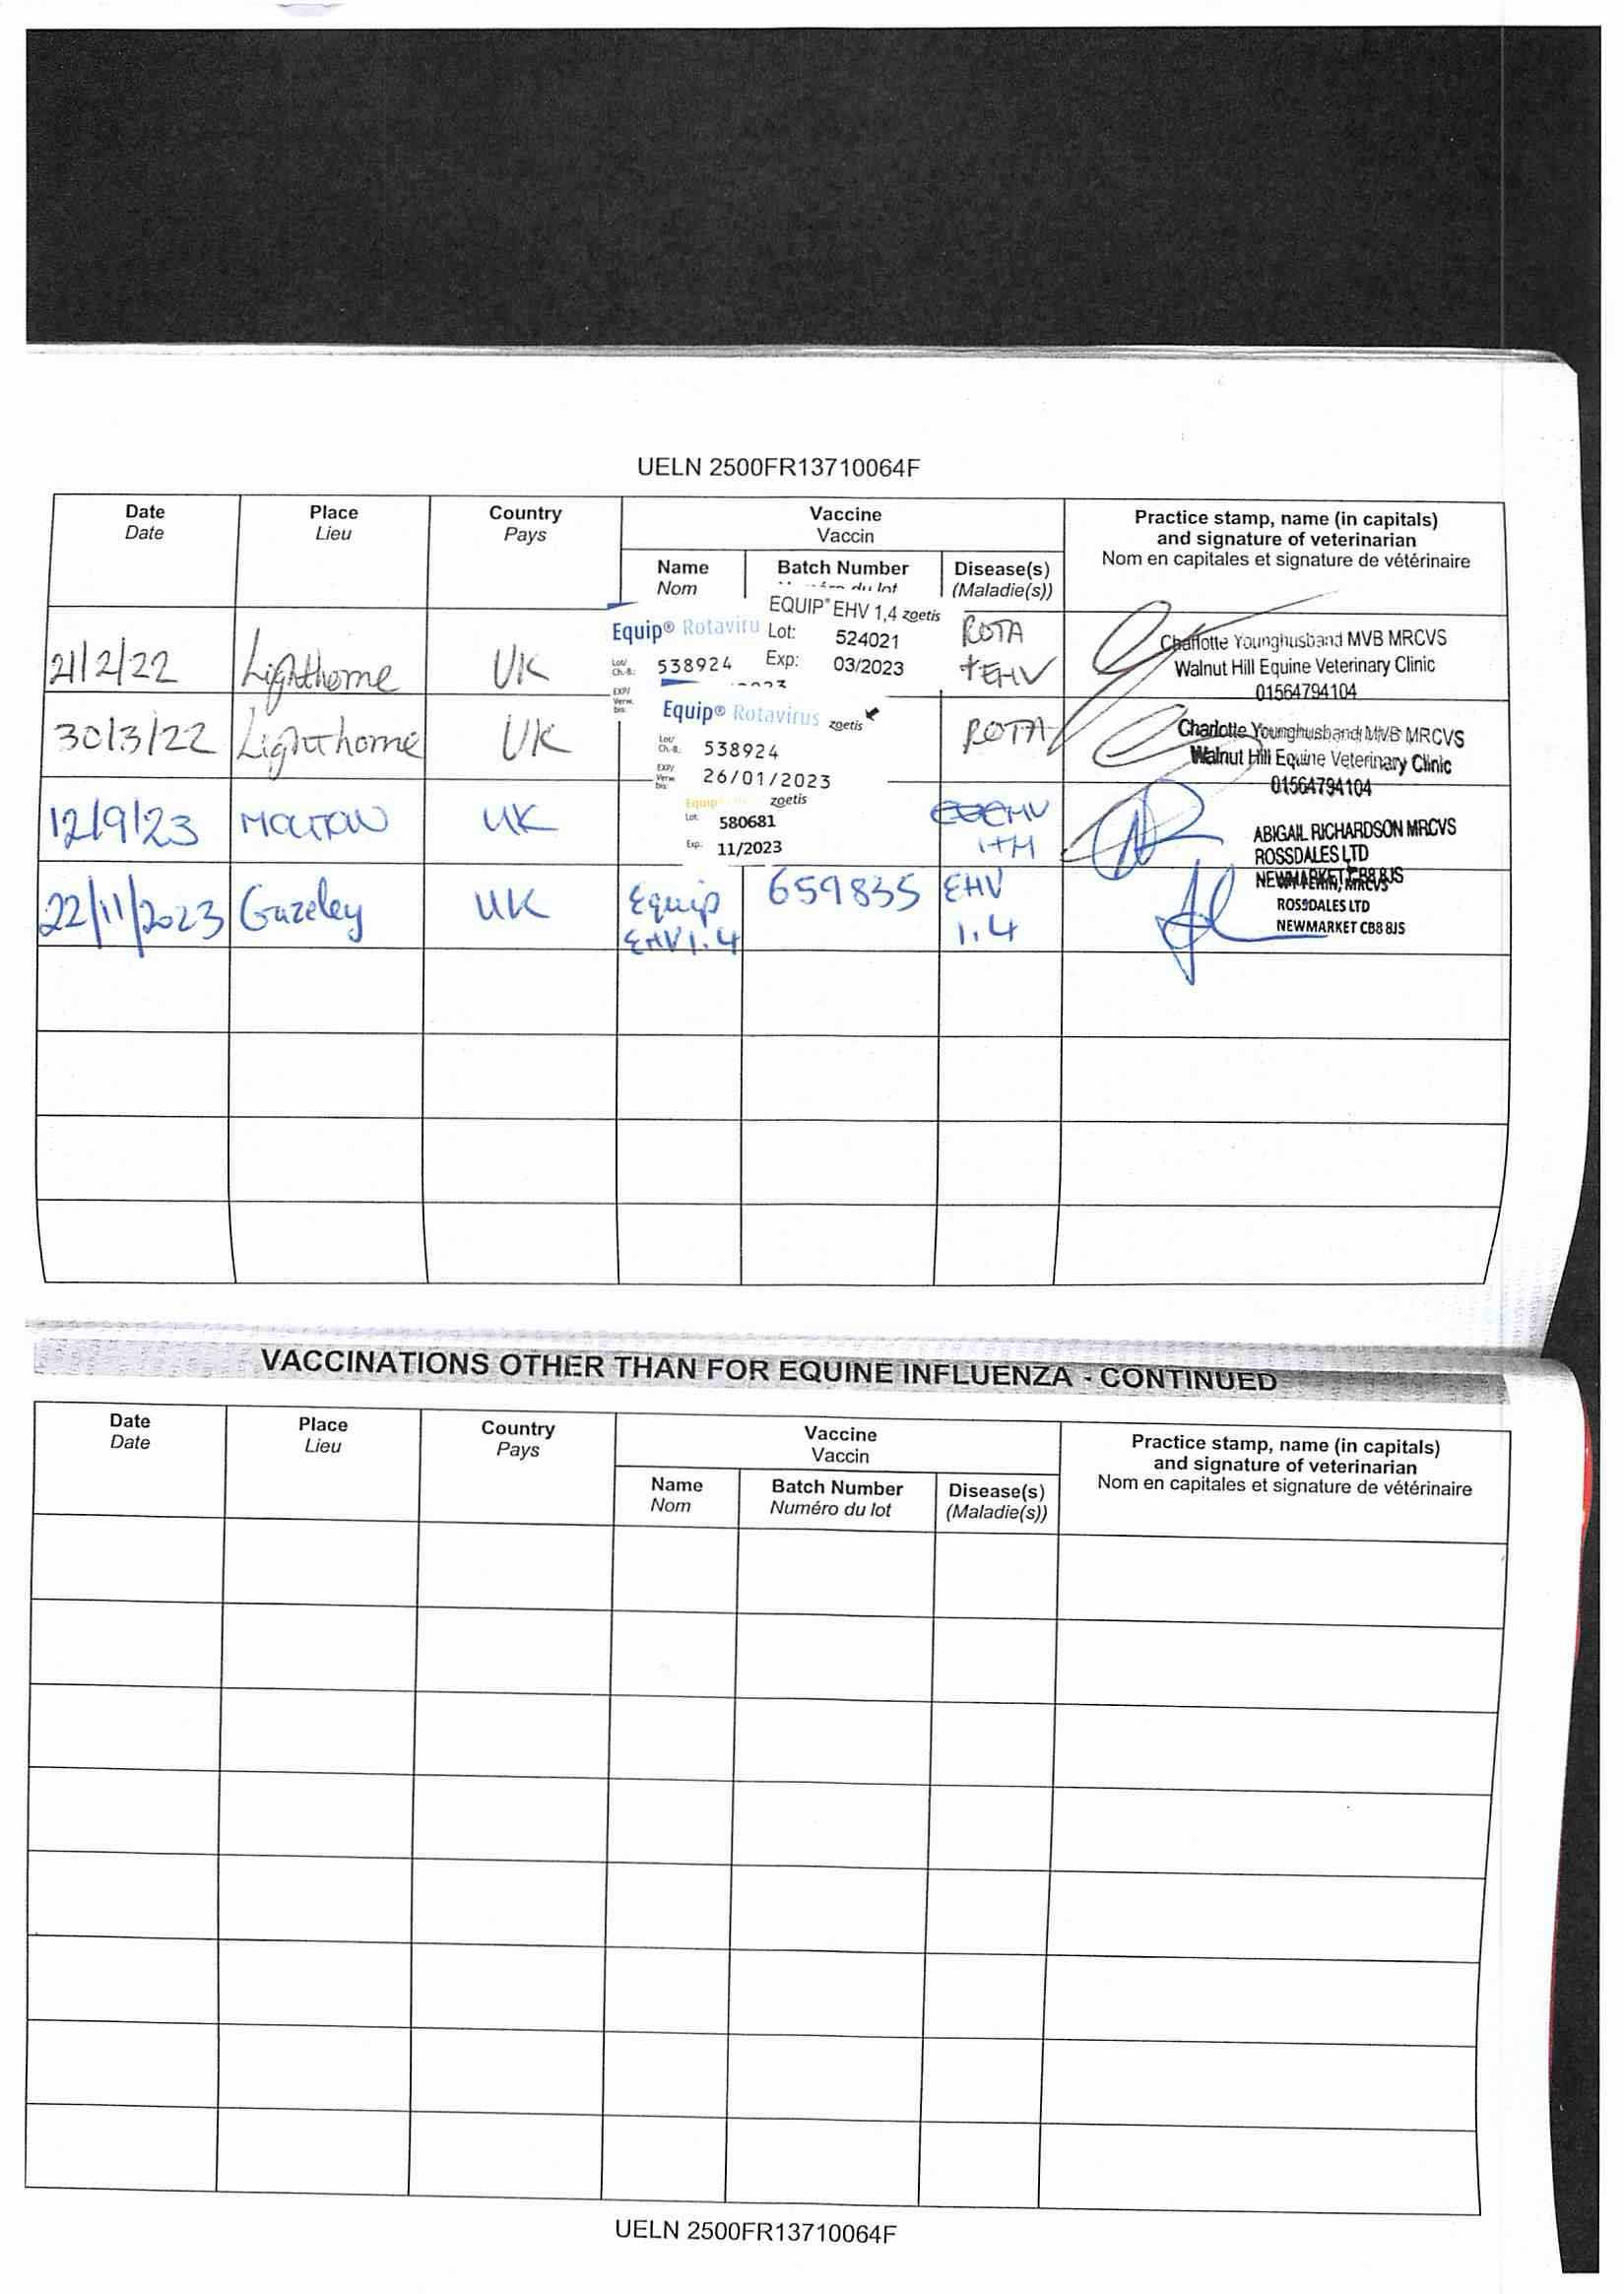 UELN 2500FR13710064F
Date Place Country Vaccine Practice stamp, name (in capitals)
Date Lieu Pays Vaccin and signature of veterinarian
Name Batch Number Disease(s) Nom en capitales et signature de vétérinaire
Nom du lot (Maladie(s))
21/2/22 Lighthorne UK Equip® Rotaviru EQUIP® EHV 1,4 zoetis ROTA Charlotte Younghusband MVB MRCVS
Lot/ Ch.-B.: 538924 Lot: 524021 + EHV Walnut Hill Equine Veterinary Clinic
EXP/ Verw. bis: Exp: 03/2023 01564794104
30/3/22 Lighthorne UK Equip® Rotavirus zoetis ROTA Charlotte Younghusband MVB MRCVS
Lot/ Ch.-B.: 538924 Walnut Hill Equine Veterinary Clinic
EXP/ Verw. bis: 26/01/2023 01564794104
12/9/23 MOULTON UK Equip zoetis EHV ABIGAIL RICHARDSON MRCVS
Lot: 580681 ROSSDALES LTD
Exp: 11/2023 NEWMARKET CB8 8JS
22/11/2023 Gazeley UK Equip 659835 EHV MRCVS
EHV1.4 1.4 ROSSDALES LTD
NEWMARKET CB8 8JS
VACCINATIONS OTHER THAN FOR EQUINE INFLUENZA - CONTINUED
Date Place Country Vaccine Practice stamp, name (in capitals)
Date Lieu Pays Vaccin and signature of veterinarian
Name Batch Number Disease(s) Nom en capitales et signature de vétérinaire
Nom Numéro du lot (Maladie(s))
UELN 2500FR13710064F